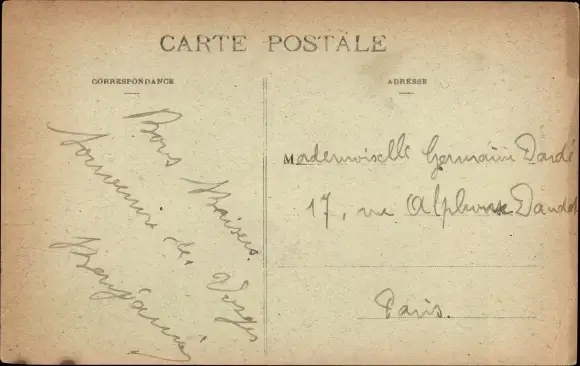 CARTE POSTALE
CORRESPONDANCE
Bons Baisers.
Souvenir des Vosges
Benjamin
ADRESSE
Mademoiselle Germaine Dardé
17, rue Alphonse Daudet
Paris.